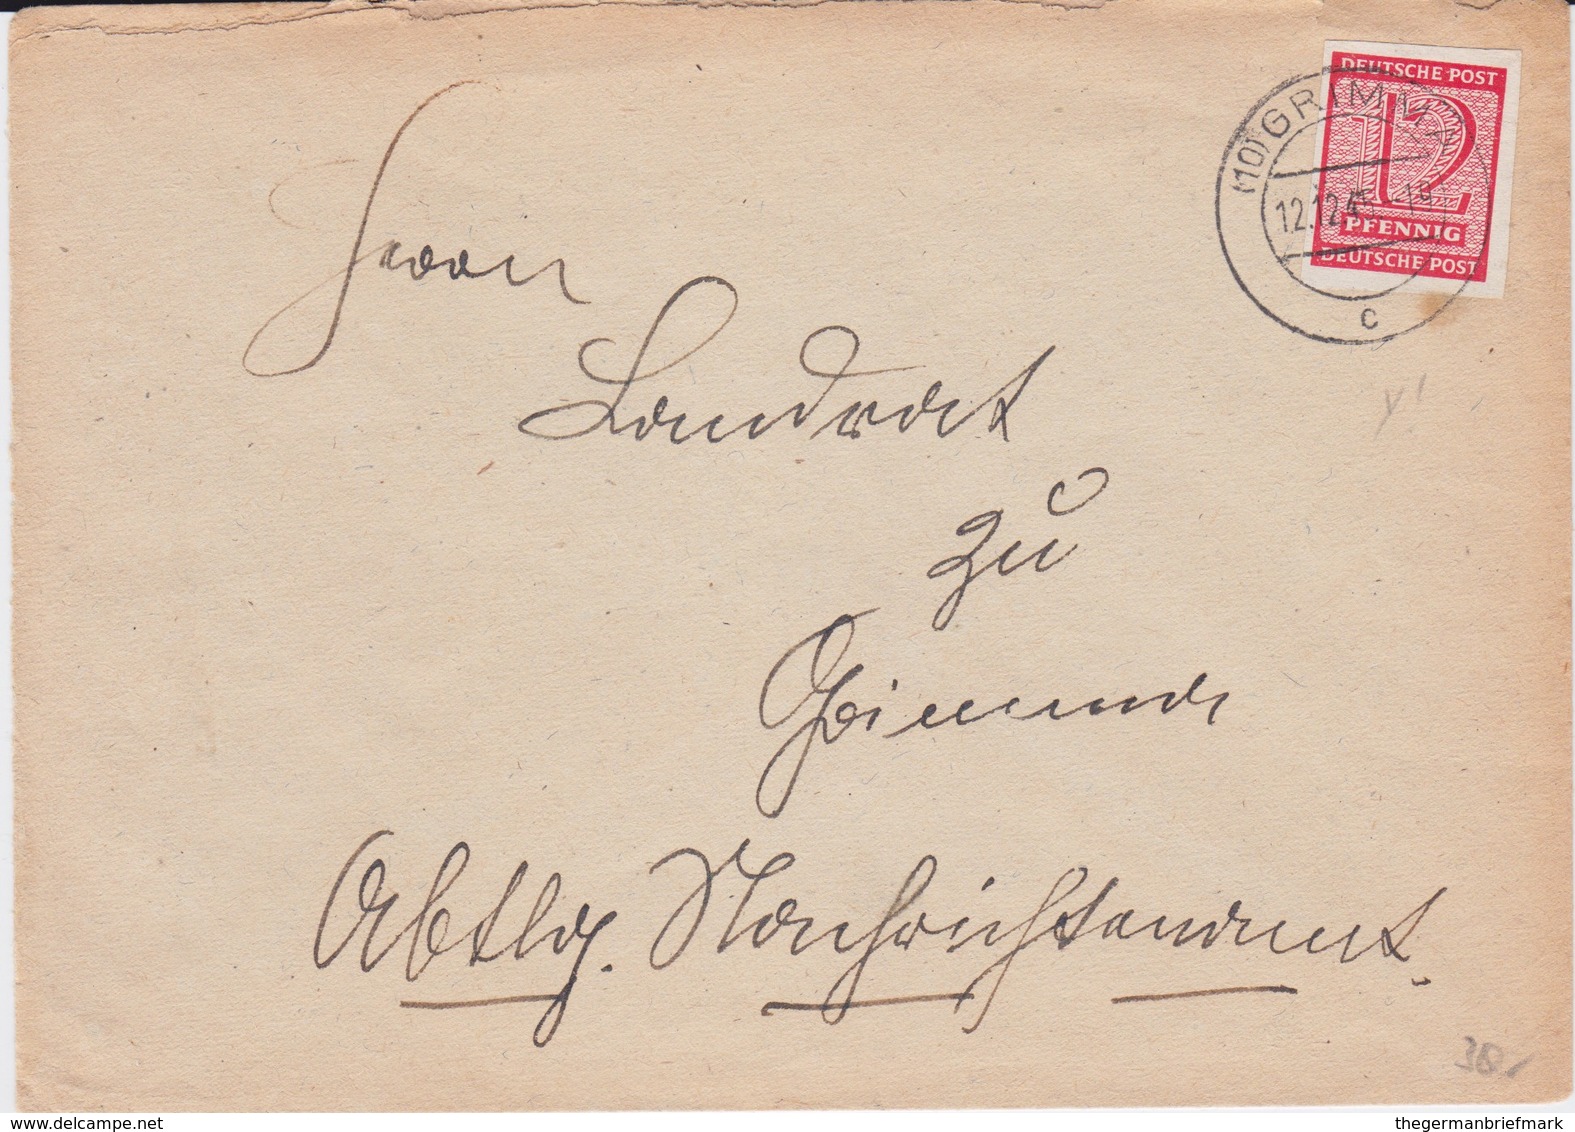 DEUTSCHE POST
12
PFENNIG
DEUTSCHE POST
(10) GRIMMA
12.12.45
c
Herrn
Landrat
zu
Grimma
Abtlg. Nachrichtenamt.
delcampe.net
thegermanbriefmark